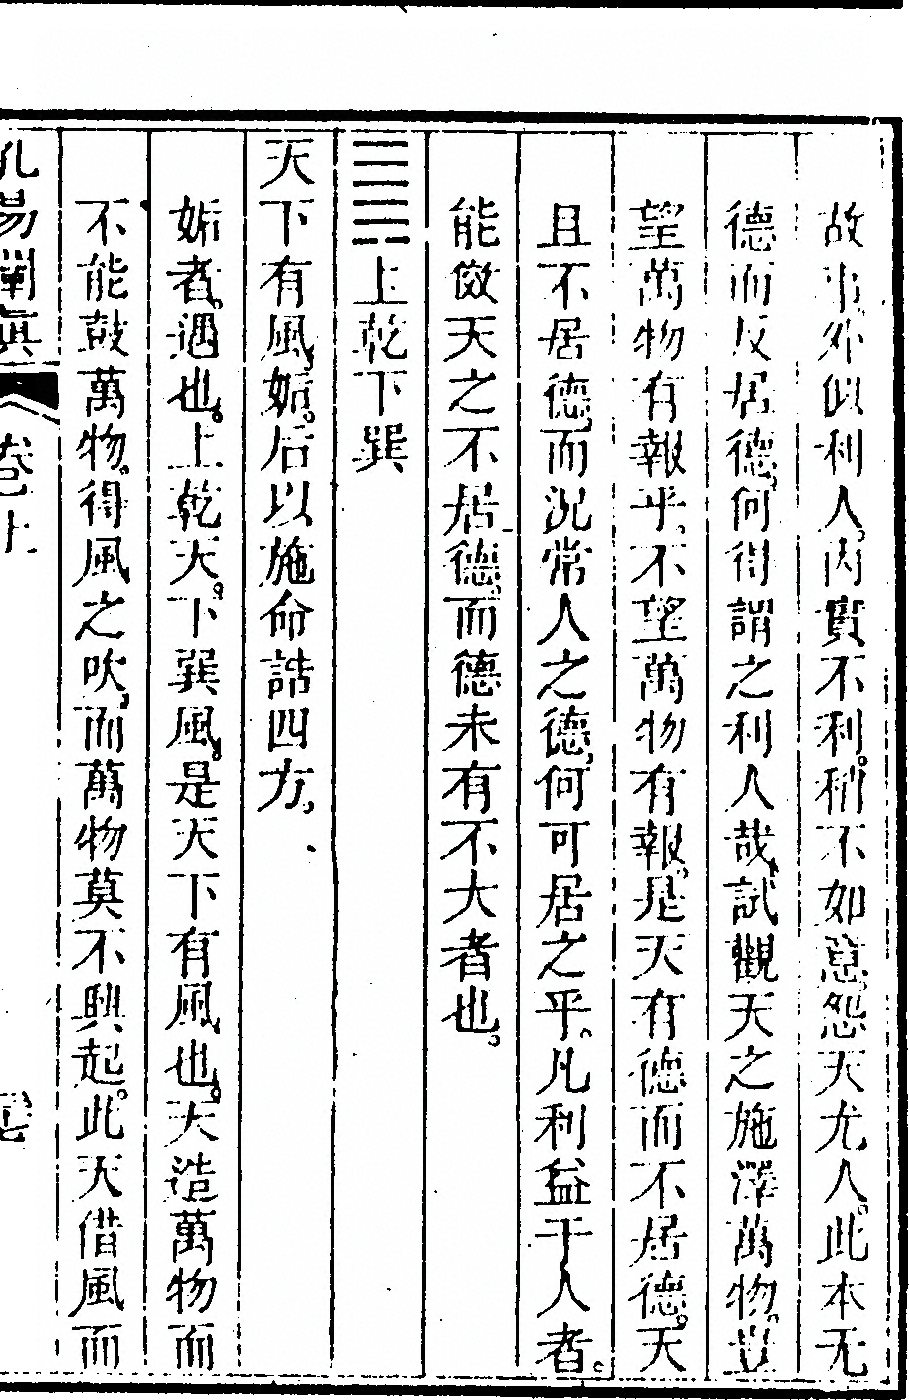 故事外似利人。內實不利。稍不如意。怨天尤人。此本无
德而反居德。何得謂之利人哉。試觀天之施澤萬物。豈
望萬物有報乎、不望萬物有報。是天有德而不居德。天
且不居德、而況常人之德、何可居之乎。凡利益于人者。
能倣天之不居德。而德未有不大者也。
䷫上乾下巽
天下有風、姤。后以施命誥四方、
姤者。遇也。上乾天。下巽風。是天下有風也。天造萬物而
不能鼓萬物。得風之吹、而萬物莫不興起。此天借風而
孔易闡真 卷上